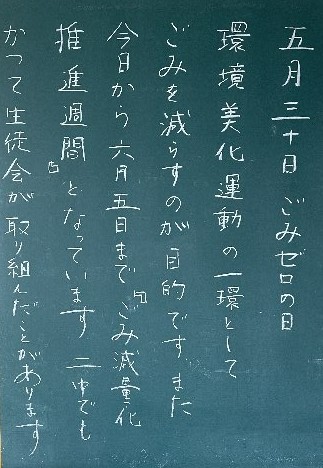 五月三十日 ごみゼロの日
環境美化運動の一環として
ごみを減らすのが目的です。また
今日から六月五日まで「ごみ減量化
推進週間」となっています 二中でも
かつて生徒会が取り組んだことがあります